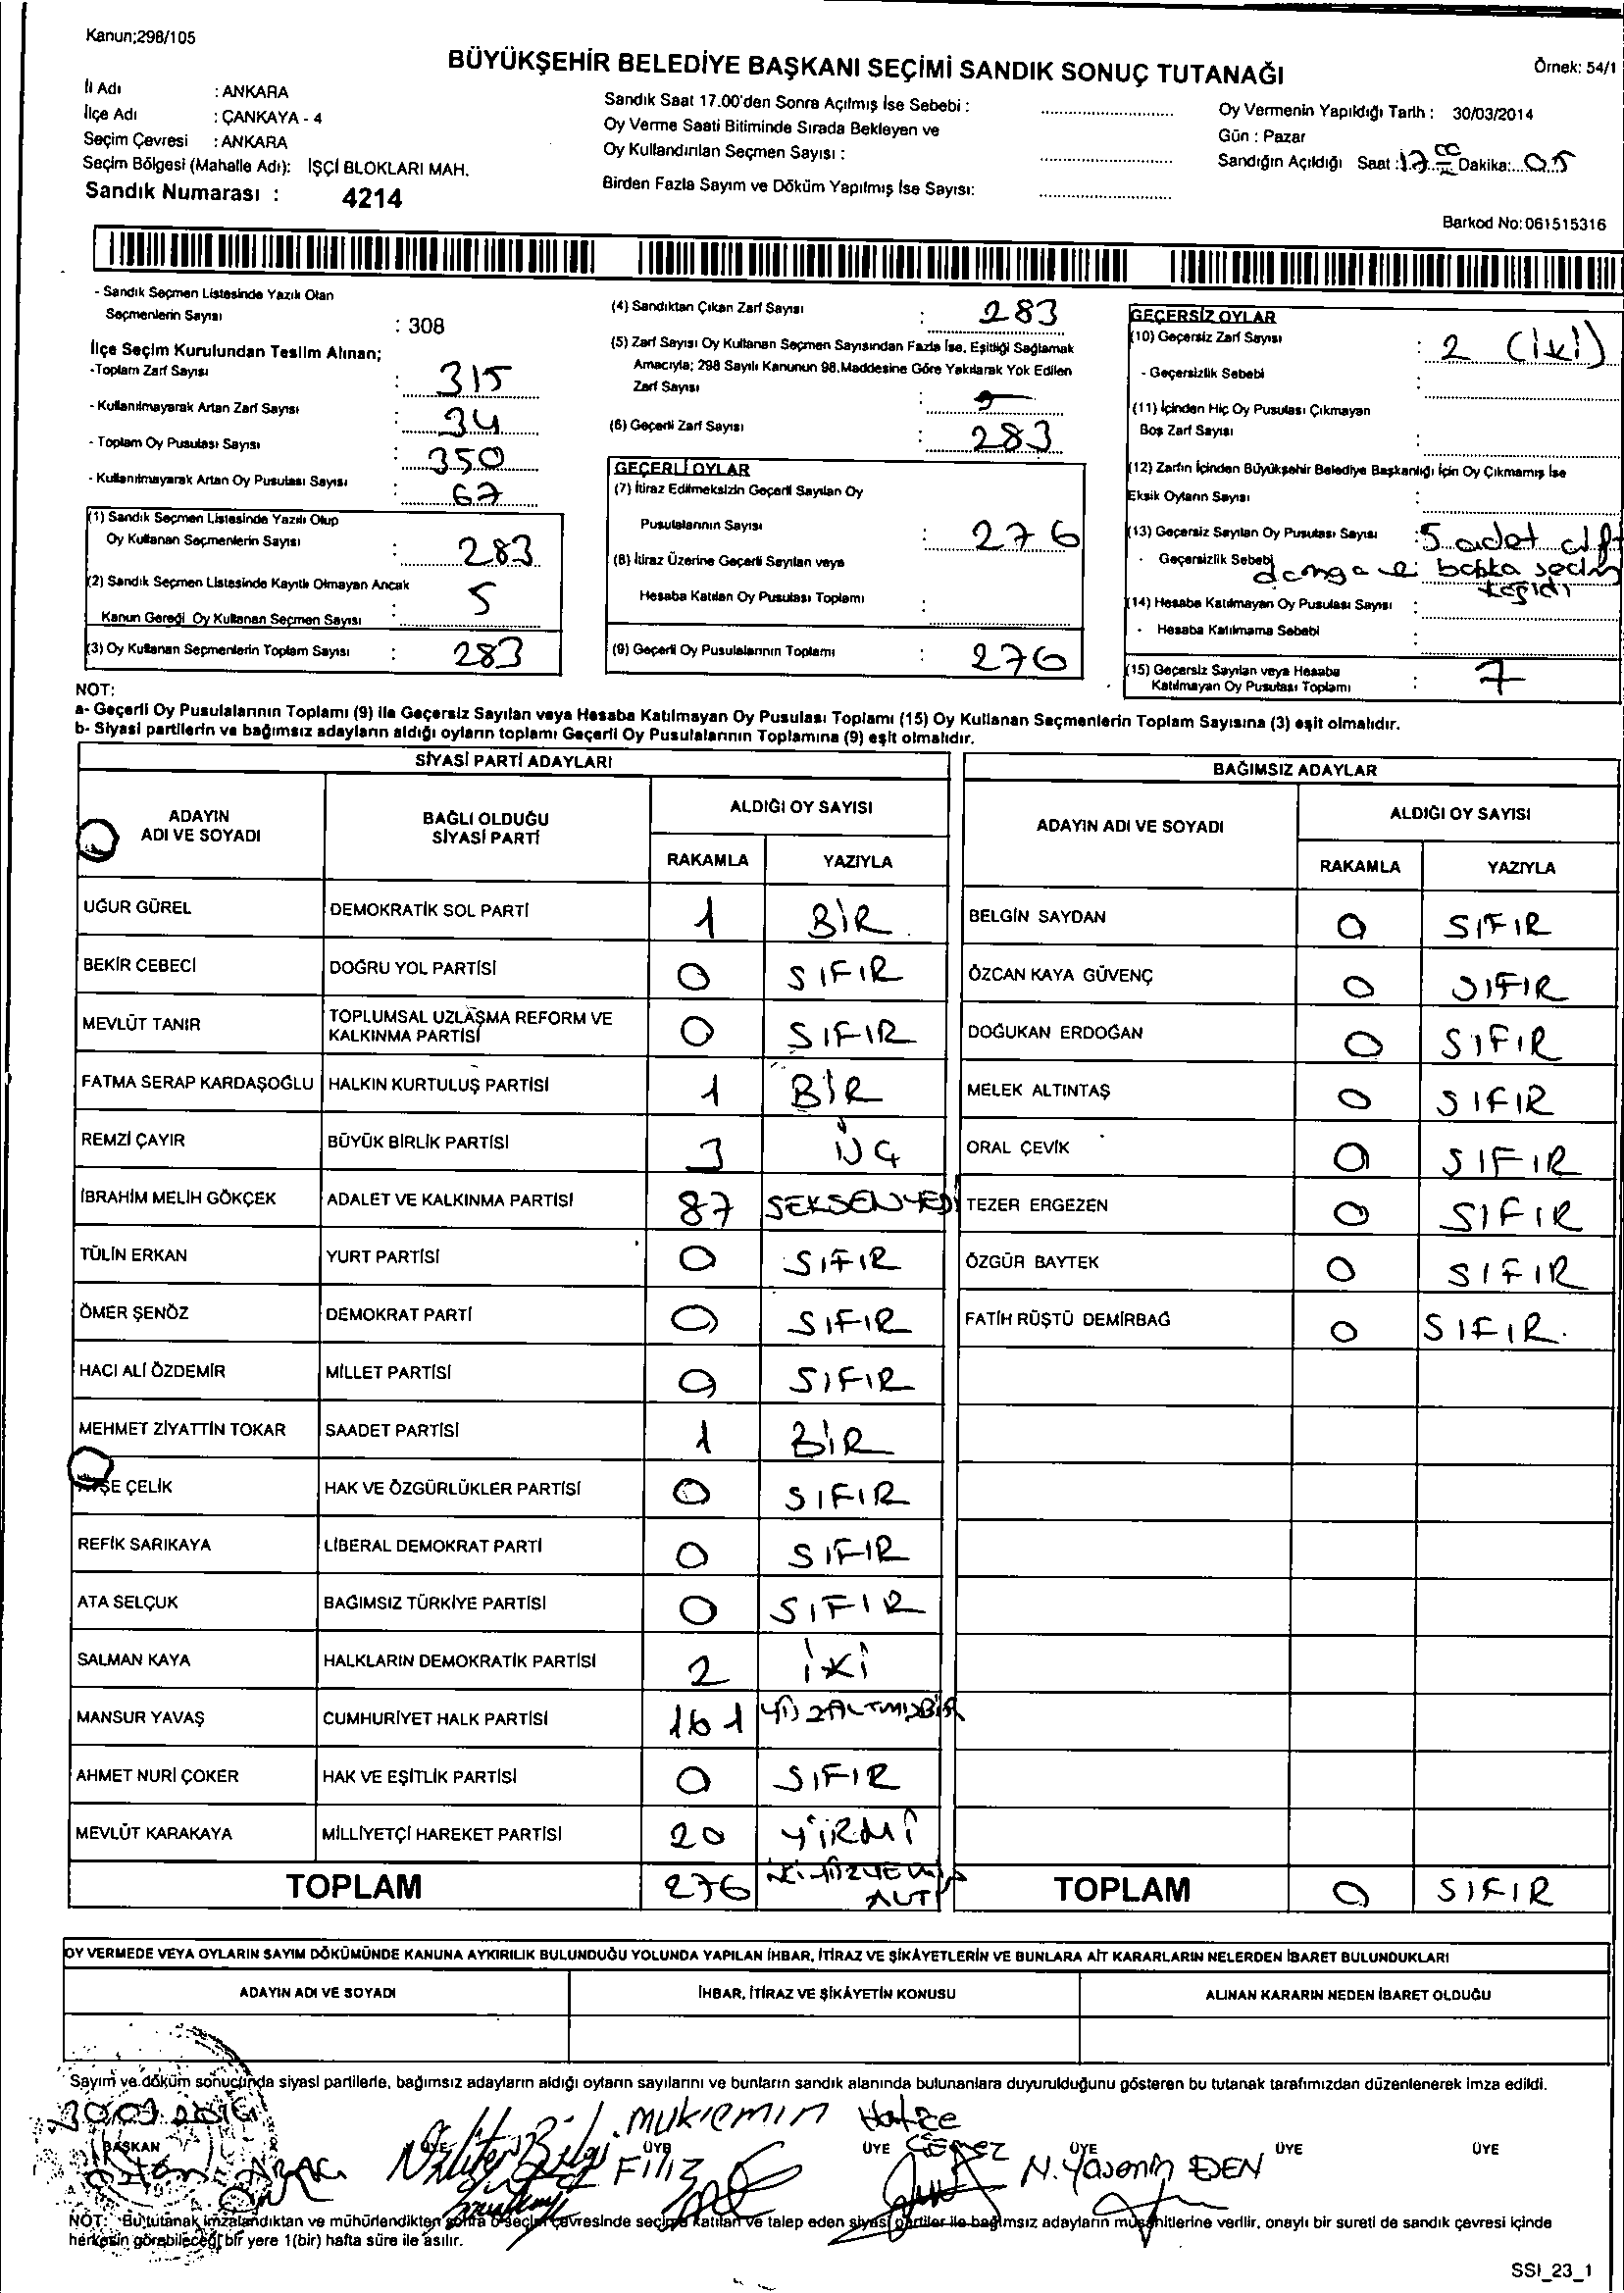 Kanun;298/105
BÜYÜKŞEHİR BELEDİYE BAŞKANI SEÇİMİ SANDIK SONUÇ TUTANAĞI
Örnek: 54/1
İl Adı : ANKARA
İlçe Adı : ÇANKAYA - 4
Seçim Çevresi : ANKARA
Seçim Bölgesi (Mahalle Adı): İŞÇİ BLOKLARI MAH.
Sandık Numarası : 4214
Sandık Saat 17.00'den Sonra Açılmış İse Sebebi :
Oy Verme Saati Bitiminde Sırada Bekleyen ve
Oy Kullandırılan Seçmen Sayısı :
Birden Fazla Sayım ve Döküm Yapılmış İse Sayısı:
Oy Vermenin Yapıldığı Tarih : 30/03/2014
Gün : Pazar
Sandığın Açıldığı Saat :17 00 Dakika: 05
Barkod No:061515316
- Sandık Seçmen Listesinde Yazılı Olan
Seçmenlerin Sayısı : 308
İlçe Seçim Kurulundan Teslim Alınan;
-Toplam Zarf Sayısı : 315
- Kullanılmayarak Artan Zarf Sayısı : 34
- Toplam Oy Pusulası Sayısı : 350
- Kullanılmayarak Artan Oy Pusulası Sayısı : 67
(1) Sandık Seçmen Listesinde Yazılı Olup
Oy Kullanan Seçmenlerin Sayısı : 283
(2) Sandık Seçmen Listesinde Kayıtlı Olmayan Ancak
Kanun Gereği Oy Kullanan Seçmen Sayısı : 5
(3) Oy Kullanan Seçmenlerin Toplam Sayısı : 283
(4) Sandıktan Çıkan Zarf Sayısı : 283
(5) Zarf Sayısı Oy Kullanan Seçmen Sayısından Fazla İse, Eşitliği Sağlamak
Amacıyla; 298 Sayılı Kanunun 98.Maddesine Göre Yakılarak Yok Edilen
Zarf Sayısı :
(6) Geçerli Zarf Sayısı : 283
GEÇERLİ OYLAR
(7) İtiraz Edilmeksizin Geçerli Sayılan Oy
Pusulalarının Sayısı : 276
(8) İtiraz Üzerine Geçerli Sayılan veya
Hesaba Katılan Oy Pusulası Toplamı :
(9) Geçerli Oy Pusulalarının Toplamı : 276
GEÇERSİZ OYLAR
(10) Geçersiz Zarf Sayısı : 2 (iki)
- Geçersizlik Sebebi :
(11) İçinden Hiç Oy Pusulası Çıkmayan
Boş Zarf Sayısı :
(12) Zarfın İçinden Büyükşehir Belediye Başkanlığı İçin Oy Çıkmamış İse
Eksik Oyların Sayısı :
(13) Geçersiz Sayılan Oy Pusulası Sayısı : 5 adet çift
- Geçersizlik Sebebi damga ve başka seçim
(14) Hesaba Katılmayan Oy Pusulası Sayısı :
- Hesaba Katılmama Sebebi :
(15) Geçersiz Sayılan veya Hesaba
Katılmayan Oy Pusulası Toplamı : 7
NOT:
a- Geçerli Oy Pusulalarının Toplamı (9) ile Geçersiz Sayılan veya Hesaba Katılmayan Oy Pusulası Toplamı (15) Oy Kullanan Seçmenlerin Toplam Sayısına (3) eşit olmalıdır.
b- Siyasi partilerin ve bağımsız adayların aldığı oyların toplamı Geçerli Oy Pusulalarının Toplamına (9) eşit olmalıdır.
SİYASİ PARTİ ADAYLARI
ADAYIN ADI VE SOYADI BAĞLI OLDUĞU SİYASİ PARTİ ALDIĞI OY SAYISI
RAKAMLA YAZIYLA
UĞUR GÜREL DEMOKRATİK SOL PARTİ 1 BİR
BEKİR CEBECİ DOĞRU YOL PARTİSİ 0 SIFIR
MEVLÜT TANIR TOPLUMSAL UZLAŞMA REFORM VE KALKINMA PARTİSİ 0 SIFIR
FATMA SERAP KARDAŞOĞLU HALKIN KURTULUŞ PARTİSİ 1 BİR
REMZİ ÇAYIR BÜYÜK BİRLİK PARTİSİ 3 ÜÇ
İBRAHİM MELİH GÖKÇEK ADALET VE KALKINMA PARTİSİ 87 SEKSENYEDİ
TÜLİN ERKAN YURT PARTİSİ 0 SIFIR
ÖMER ŞENÖZ DEMOKRAT PARTİ 0 SIFIR
HACI ALİ ÖZDEMİR MİLLET PARTİSİ 0 SIFIR
MEHMET ZİYATTİN TOKAR SAADET PARTİSİ 1 BİR
ÇELİK HAK VE ÖZGÜRLÜKLER PARTİSİ 0 SIFIR
REFİK SARIKAYA LİBERAL DEMOKRAT PARTİ 0 SIFIR
ATA SELÇUK BAĞIMSIZ TÜRKİYE PARTİSİ 0 SIFIR
SALMAN KAYA HALKLARIN DEMOKRATİK PARTİSİ 2 İKİ
MANSUR YAVAŞ CUMHURİYET HALK PARTİSİ 161 YÜZALTMIŞBİR
AHMET NURİ ÇOKER HAK VE EŞİTLİK PARTİSİ 0 SIFIR
MEVLÜT KARAKAYA MİLLİYETÇİ HAREKET PARTİSİ 20 YİRMİ
TOPLAM 276 İKİYÜZYETMİŞ ALTI
BAĞIMSIZ ADAYLAR
ADAYIN ADI VE SOYADI ALDIĞI OY SAYISI
RAKAMLA YAZIYLA
BELGİN SAYDAN 0 SIFIR
ÖZCAN KAYA GÜVENÇ 0 SIFIR
DOĞUKAN ERDOĞAN 0 SIFIR
MELEK ALTINTAŞ 0 SIFIR
ORAL ÇEVİK 0 SIFIR
TEZER ERGEZEN 0 SIFIR
ÖZGÜR BAYTEK 0 SIFIR
FATİH RÜŞTÜ DEMİRBAĞ 0 SIFIR.
TOPLAM 0 SIFIR
OY VERMEDE VEYA OYLARIN SAYIM DÖKÜMÜNDE KANUNA AYKIRILIK BULUNDUĞU YOLUNDA YAPILAN İHBAR, İTİRAZ VE ŞİKÂYETLERİN VE BUNLARA AİT KARARLARIN NELERDEN İBARET BULUNDUKLARI
ADAYIN ADI VE SOYADI İHBAR, İTİRAZ VE ŞİKÂYETİN KONUSU ALINAN KARARIN NEDEN İBARET OLDUĞU
Sayım ve döküm sonucunda siyasi partilerle, bağımsız adayların aldığı oyların sayılarını ve bunların sandık alanında bulunanlara duyurulduğunu gösteren bu tutanak tarafımızdan düzenlenerek imza edildi.
BAŞKAN ÜYE ÜYE ÜYE ÜYE ÜYE ÜYE
mükremin Hatice
FİLİZ N. Yasemin EDEN
NOT: Bu tutanak imzalandıktan ve mühürlendikten sonra o seçim çevresinde seçime katılan ve talep eden siyasi partiler ile bağımsız adayların müşahitlerine verilir, onaylı bir sureti de sandık çevresi içinde
herkesin görebileceği bir yere 1(bir) hafta süre ile asılır.
SSI_23_1